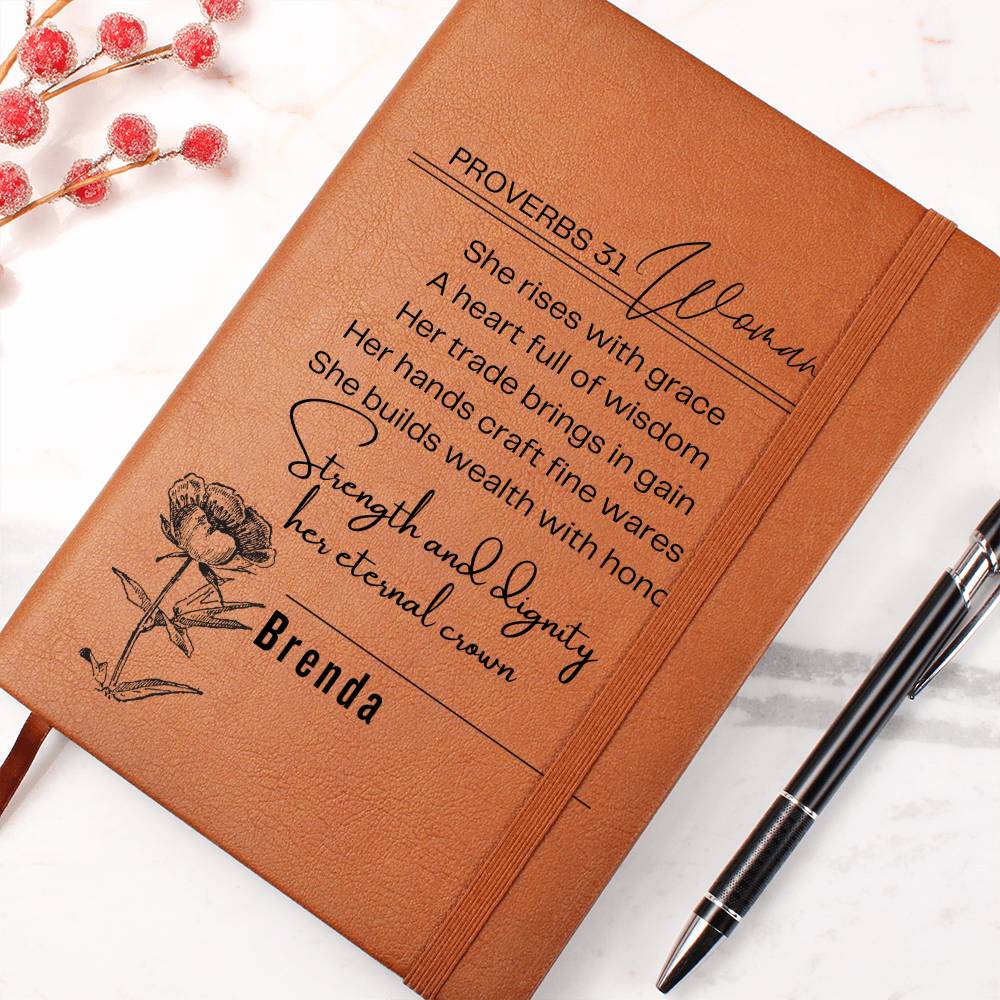 PROVERBS 31 Woman
She rises with grace
A heart full of wisdom
Her trade brings in gain
Her hands craft fine wares
She builds wealth with hono
Strength and dignity
her eternal crown
Brenda